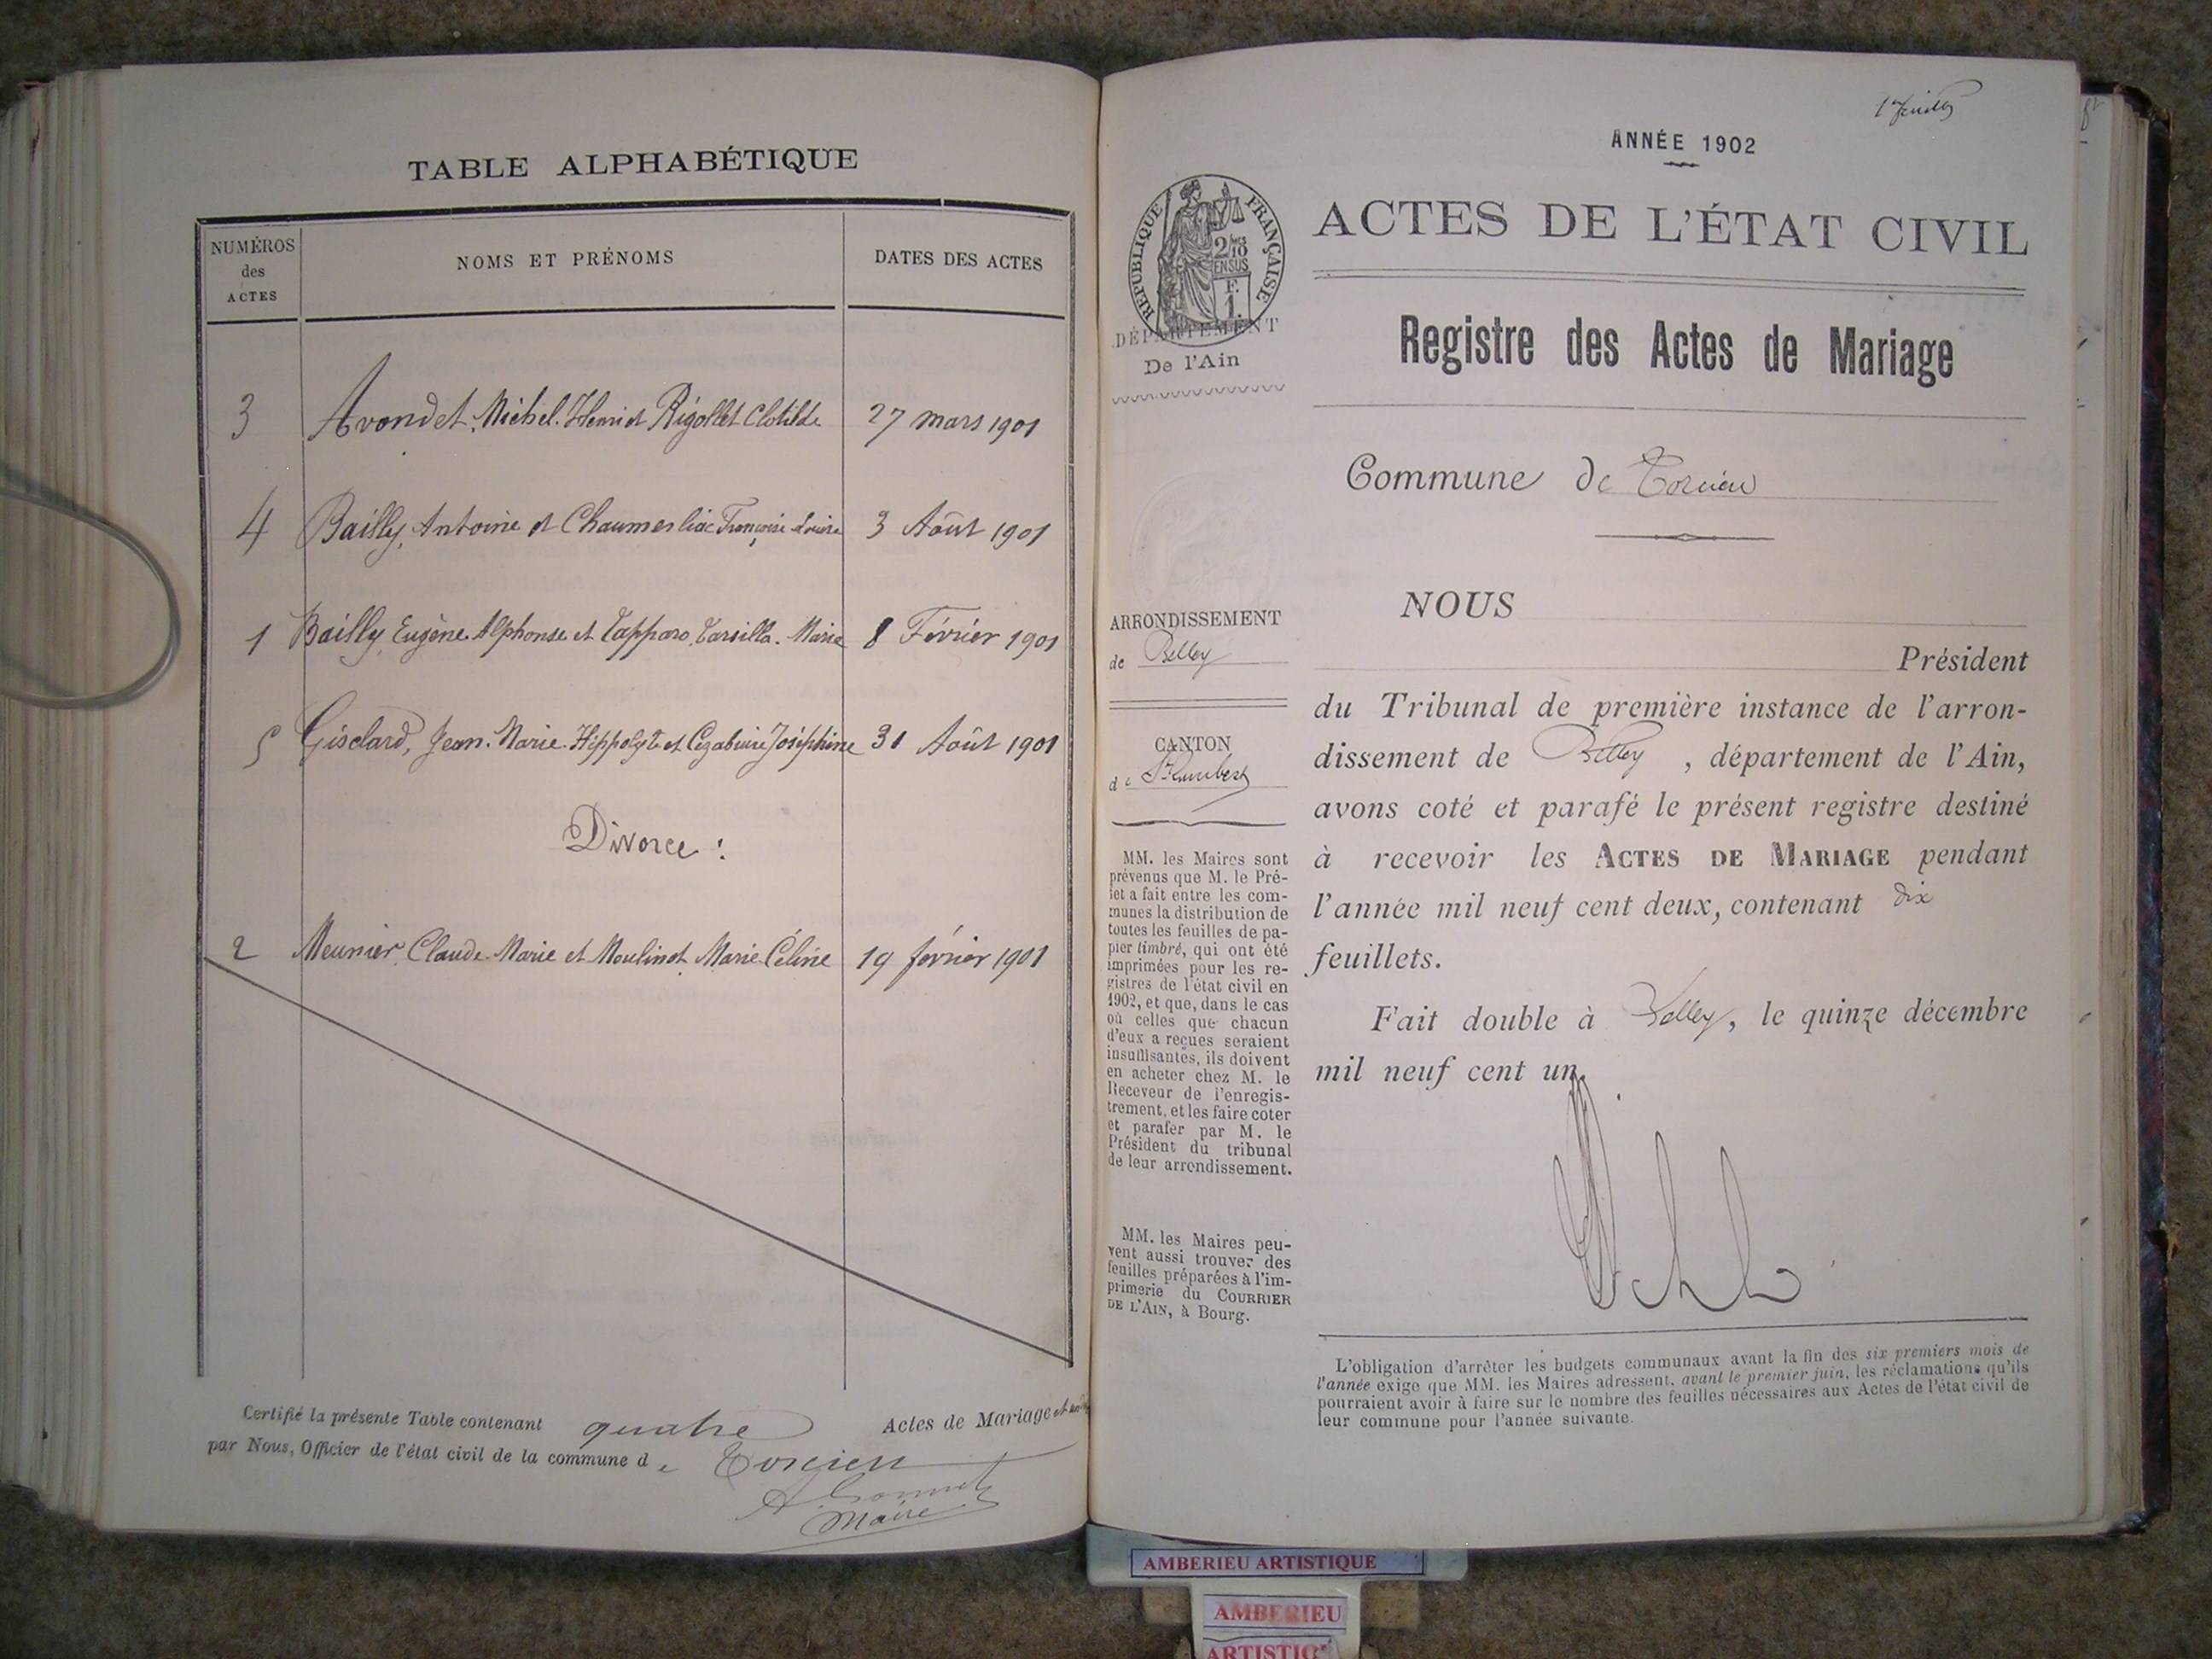 TABLE ALPHABÉTIQUE
NUMÉROS des ACTES
NOMS ET PRÉNOMS
DATES DES ACTES
3 Avondet, Michel. Henri et Rigollet Clotilde 27 mars 1901
4 Bailly, Antoine et Chaumesliac Françoise Louise 3 Août 1901
1 Bailly, Eugène Alphonse et Tapparo, Tarsilla. Marie 8 Février 1901
5 Gisclard, Jean. Marie. Hippolyte et Joséphine 31 Août 1901
Divorce :
2 Meunier, Claude. Marie et Moulinot Marie. Céline 19 février 1901
Certifié la présente Table contenant quatre Actes de Mariage et
par Nous, Officier de l'état civil de la commune de Torcieu
Maire
1er feuillet
ANNÉE 1902
RÉPUBLIQUE FRANÇAISE
2/10 EN SUS
F. 1.
DÉPARTEMENT
De l'Ain
ACTES DE L'ÉTAT CIVIL
Registre des Actes de Mariage
Commune de Torcieu
ARRONDISSEMENT
de Belley
CANTON
de St Rambert
MM. les Maires sont
prévenus que M. le Pré-
fet a fait entre les com-
munes la distribution de
toutes les feuilles de pa-
pier timbré, qui ont été
imprimées pour les re-
gistres de l'état civil en
1902, et que, dans le cas
où celles que chacun
d'eux a reçues seraient
insuffisantes, ils doivent
en acheter chez M. le
Receveur de l'enregis-
trement, et les faire coter
et parafer par M. le
Président du tribunal
de leur arrondissement.
MM. les Maires peu-
vent aussi trouver des
feuilles préparées à l'im-
primerie du COURRIER
DE L'AIN, à Bourg.
NOUS
Président
du Tribunal de première instance de l'arron-
dissement de Belley, département de l'Ain,
avons coté et parafé le présent registre destiné
à recevoir les ACTES DE MARIAGE pendant
l'année mil neuf cent deux, contenant dix
feuillets.
Fait double à Belley, le quinze décembre
mil neuf cent un.
L'obligation d'arrêter les budgets communaux avant la fin des six premiers mois de
l'année exige que MM. les Maires adressent, avant le premier juin, les réclamations qu'ils
pourraient avoir à faire sur le nombre des feuilles nécessaires aux Actes de l'état civil de
leur commune pour l'année suivante.
AMBERIEU ARTISTIQUE
AMBERIEU
ARTISTIQ